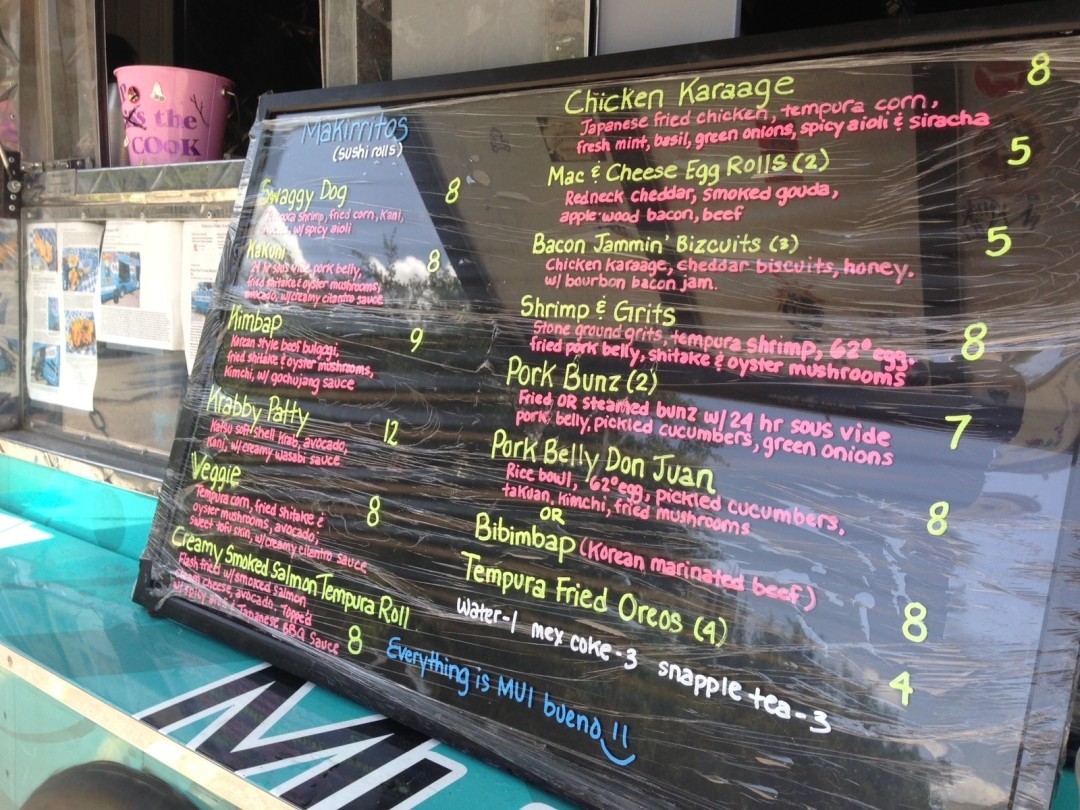 is the
COOK
Makirritos
(sushi rolls)
Swaggy Dog 8
shrimp, fried corn, Kani,
w/spicy aioli
Kakuni 8
24 hr sous vide pork belly,
fried shitake & oyster mushrooms,
avocado, w/creamy cilantro sauce
Kimbap 9
Korean style beef bulgogi,
fried shitake & oyster mushrooms,
Kimchi, w/ gochujang sauce
Krabby Patty 12
Katsu soft shell Krab, avocado,
Kani, w/creamy wasabi sauce
Veggie 8
Tempura corn, fried shitake &
oyster mushrooms, avocado,
sweet tofu skin, w/creamy cilantro sauce
Creamy Smoked Salmon Tempura Roll
Flash fried w/smoked salmon
cream cheese, avocado, Topped
w/spicy aioli & Japanese BBQ Sauce 8
Chicken Karaage 8
Japanese fried chicken, tempura corn,
fresh mint, basil, green onions, spicy aioli & siracha
Mac & Cheese Egg Rolls (2) 5
Redneck cheddar, smoked gouda,
apple wood bacon, beef
Bacon Jammin' Bizcuits (3) 5
Chicken Karaage, cheddar biscuits, honey,
w/ bourbon bacon jam.
Shrimp & Grits 8
Stone ground grits, tempura shrimp, 62° egg,
fried pork belly, shitake & oyster mushrooms
Pork Bunz (2) 7
Fried OR steamed bunz w/ 24 hr sous vide
pork belly, pickled cucumbers, green onions
Pork Belly Don Juan 8
Rice bowl, 62° egg, pickled cucumbers,
takuan, Kimchi, fried mushrooms
OR
Bibimbap (Korean marinated beef) 8
Tempura Fried Oreos (4) 4
water-1 mex coke-3 snapple tea-3
Everything is MUI bueno !!